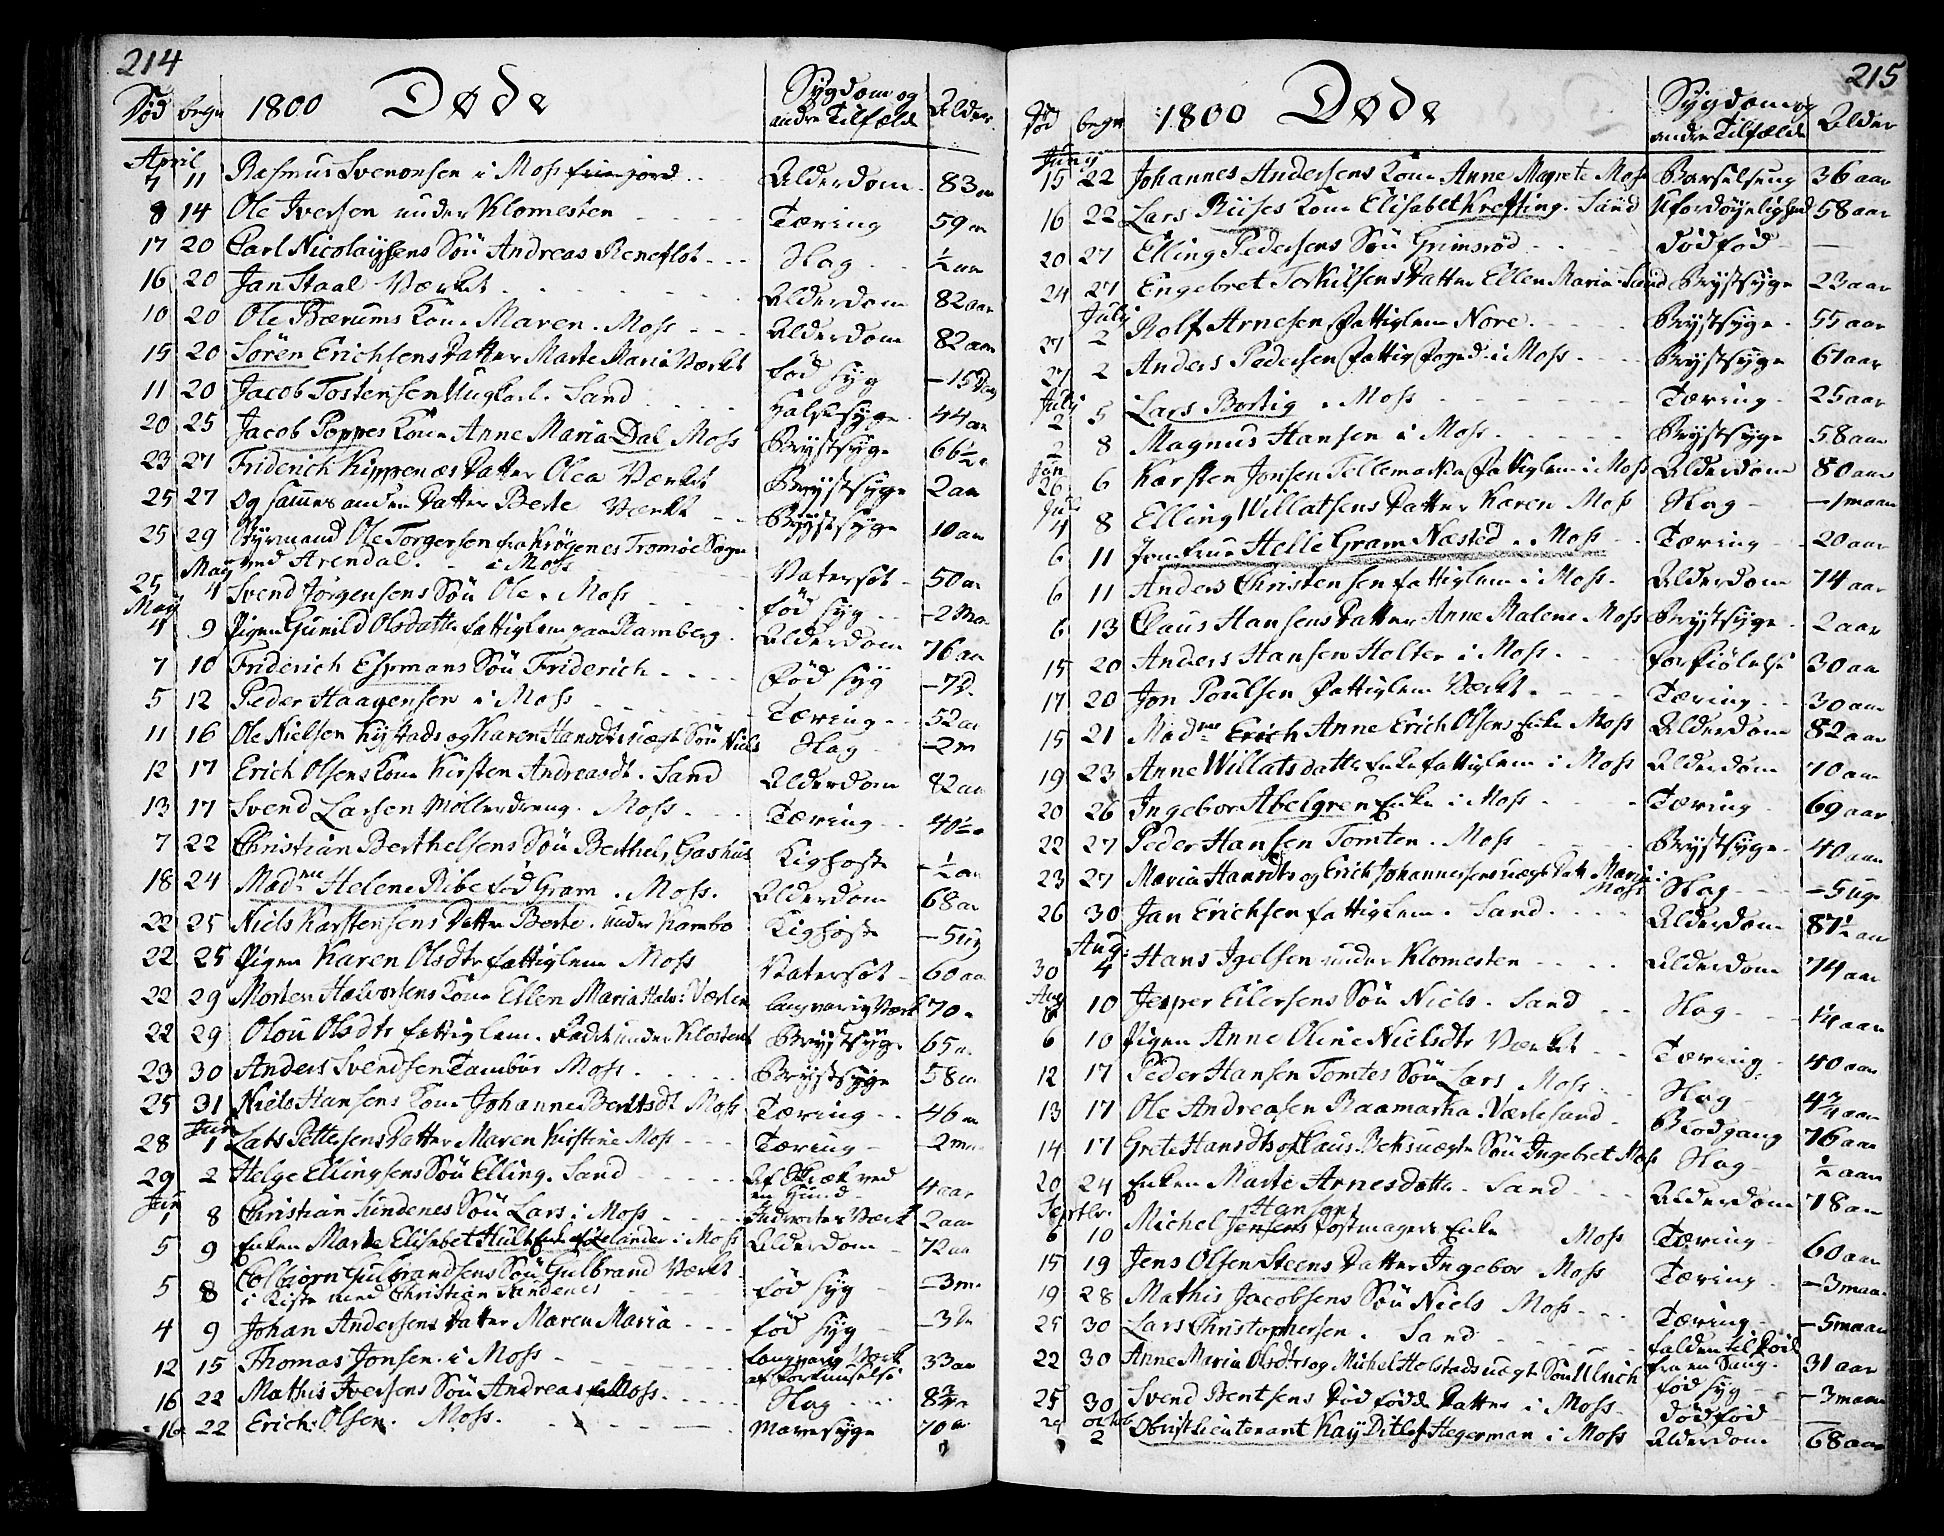 214
Død begr 1800 Døde Sygdom og andre Tilfælde Alder
April
7 11 Rasmus Svenonsen i Moss Alderdom 83 aar
8 14 Ole Iversen under Klomesten Tæring 59 aar
17 20 Carl Nicolaysens Søn Andreas Reneflot Slag ½ aar
16 20 Jan Staal Værket Alderdom 82 aar
10 20 Ole Bærums Kone Maren. Moss Alderdom 82 aar
15 20 Søren Erichsens Datter Marte Maria Værket fød syg -15 Dag
11 20 Jacob Tostensen Ungkarl. Sand Halssyge 44 aar
20 25 Jacob Poppes Kone Anne Maria Dal Moss Brystsyge 66½
23 27 Friderich Kippenæs Datter Olea Værket Brystsyge 2 aar
25 27 og sammes anden Datter Berte Værket Brystsyge 10 aar
25 29 Styrmand Ole Torgersen fra Krøgenes Tromøe Sogn
ved Arendal. i Moss Vatersot 50 aar
May
25 4 Svend Jørgensens Søn Ole. Moss fød syg -2 Ma.
May
4 9 Pigen Gunild Olsdatter fattiglem paa Ramberg Alderdom 76 aar
7 10 Friderich Essmans Søn Friderich Fød syg -7 D.
5 12 Peder Haagensen i Moss Tæring 52 aar
11 16 Ole Nielsen Kystads og Karen Hansdtr uægt Søn Niels Slag -2 m
12 17 Erich Olsens Kone Kirsten Andreasdt. Sand Alderdom 82 aar
13 17 Svend Larsen Møllerdreng. Moss Tæring 40½
7 22 Christian Berthelsens Søn Berthel, Gashus Kighoste -½ aar
18 24 Madme Helene Ribe fød Gram. Moss. Alderdom 68 aar
22 25 Niels Karstensens Datter Berte. under Kambo Kighoste -5 ug
22 25 Pigen Karen Olsdtr fattiglem Moss Vatersot 60 aar
22 29 Morten Halvorsens Kone Ellen Maria Halv: Værlen langvarig Værk 70
22 29 Olou Olsdtr fattiglem. Født under Klosteret Brystsyge 65
23 30 Anders Svendsen Tambur Moss. Brystsyge 58 aar
25 31 Niels Hansens Kone Johanne Berntsdt Moss Tæring 46 aar
Jun
28 1 Lars Pettersens Datter Maren Kirstine Moss Tæring -2 m
29 2 Helge Ellingsens Søn Elling. Sand Af Skræk ved en Hund 4 aar
Jun
1 8 Christian Sundenes Søn Lars i Moss Indvortes Værk 2 aar
5 9 Enken Marte Elisabet Hult i Moss Alderdom 72 aar
5 8 Colbiørn Gulbrandsens Søn Gulbrand Værket
i Kiste med Christian Sandenes fød syg -3 m.
4 9 Johan Andersens Datter Maren Maria fød syg -3
12 15 Thomas Jonsen. i Moss langvarig Værk af Forkiølelse 33 aar
16 22 Mathis Iversens Søn Andreas Moss. Slag 8¾
16 22 Erich Olsen. Moss. Mavesyge 70
215
Død begr 1800 Døde Sygdom og andre Tilfælde Alder
Juny
15 22 Johannes Andersens Kone Anne Magrete Moss Barselseng 36 aar
16 22 Lars Riises Kone Elisabet Krefting. Sand Ufordøyelighed 58 aar
20 27 Elling Pedersens Søn Grimsrød dødfød -
24 27 Engebret Torkilsens Datter Ellen Maria Sand Brystsyge 23 aar
July
27 2 Rolf Arnesen fattiglem Nore. Brystsyge 55 aar
27 2 Anders Pedersen Fattig Foged i Moss Brystsyge 67 aar
July
2 5 Lars Bortig. Moss Tæring 25 aar
2 8 Magnus Hansen i Moss Brystsyge 58 aar
Jun
26 6 Karsten Jonsen Tellemarken fattiglem i Moss Alderdom 80 aar
July
4 8 Elling Willatsens Datter Karen Moss Slag -1 maan
6 11 Jomfrue Helle Gram Næsted. Moss Tæring 20 aar
6 11 Anders Christensen fattiglem i Moss. Alderdom 74 aar
6 13 Claus Hansens Datter Anne Malene Moss Brystsyge 2 aar
15 20 Anders Hansen Holter i Moss. forkiølelse 30 aar
17 20 Jon Poulsen fattiglem Værket. Tæring 30 aar
15 21 Madme Erich Anne Erich Olsens Enke Moss Alderdom 82 aar
19 23 Anne Willatsdatter Enke fattiglem i Moss Alderdom 70 aar
20 26 Ingebor Abelgren Enke i Moss Tæring 69 aar
22 27 Peder Hansen Tomten. Moss Brystsyge 40 aar
23 27 Maria Hansdtr og Erich Johannessens uægt Datt. Maria Moss Slag -5 uge
26 30 Jan Erichsen fattiglem. Sand. Alderdom 87½ aar
Aug:
30 4 Hans Igelsen under Klomesten Alderdom 74 aar
Aug
6 10 Jesper Eilersens Søn Niels. Sand Slag ¼ aar
6 10 Pigen Anne Oline Nielsdtr Værket Tæring 40 aar
12 17 Peder Hansen Tomtes Søn Lars Moss Slag 4¾ aar
13 17 Ole Andreasen Raamarka. Værlesand Blodgang 76 aar
14 17 Grete Hansdtr og Claus Beks uægte Søn Ingebret Moss Slag ½ aar
20 24 Enken Marte Arnesdatter. Sand Alderdom 78 aar
Septbr. Hansens
6 10 Michel Jensens Postmagers Enke Moss Tæring 60 aar
15 19 Jens Olsen Steens Datter Ingebor Moss Tæring -3 maan
19 28 Mathis Jacobsens Søn Niels Moss Tæring -5 maan
25 30 Lars Christophersen. Sand falden til Død fra en Sang. 31 aar
22 30 Anne Maria Olsdtr og Michel Holstads uægt Søn Ulrich fød syg -3 maan
25 30 Svend Bentsens Dødfødde Datter i Moss dødfød -
29 octob 2 Obristlieutenant Kay Ditlef Hegerman i Moss Alderdom 68 aar